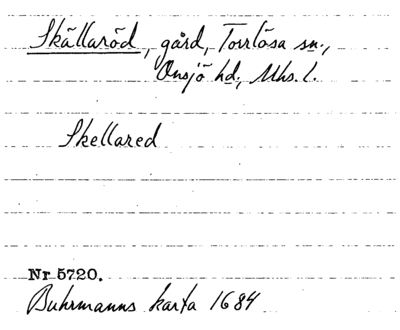 Skällaröd, gård, Torrlösa sn.,
Onsjö hd., Mhs. l.
Skellared
Nr 5720.
Buhrmanns karta 1684